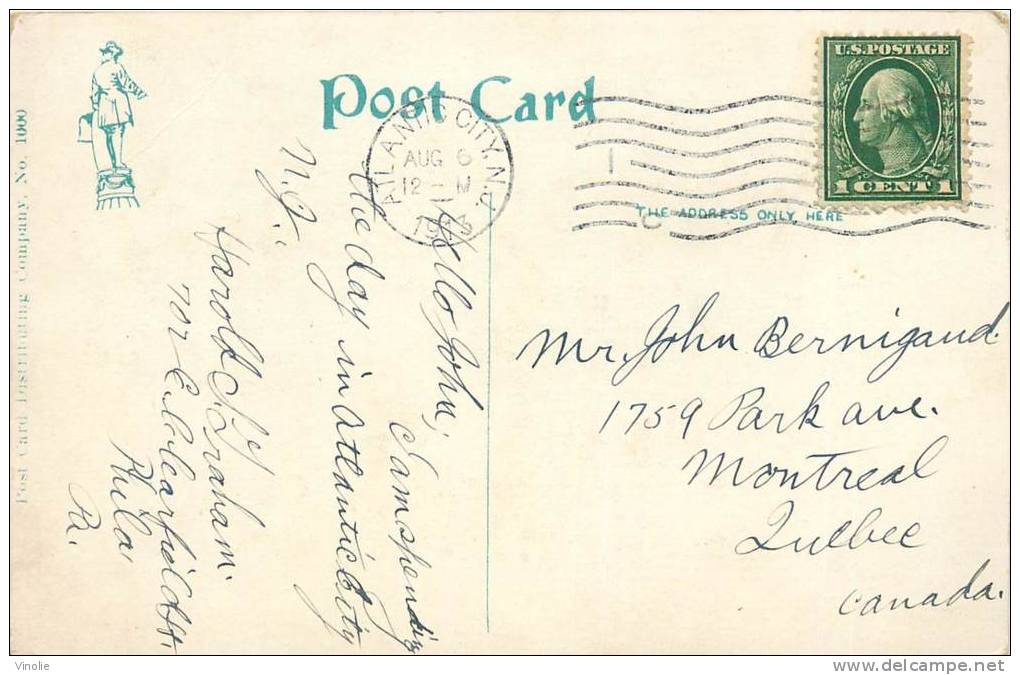 Post Card
U.S. POSTAGE
1 CENT 1
ATLANTIC CITY, N.J.
AUG 6
12 - M
1913
THE ADDRESS ONLY HERE
Post Card Distributing Company, No. 1000
Hello John,
I am spending
the day in Atlantic City
N.J..
Harold S. Graham.
702 E. Clearfield St.
Phila,
Pa.
Mr. John Bernigaud.
1759 Park ave.
Montreal
Quebec
Canada.
Vinolie
www.delcampe.net